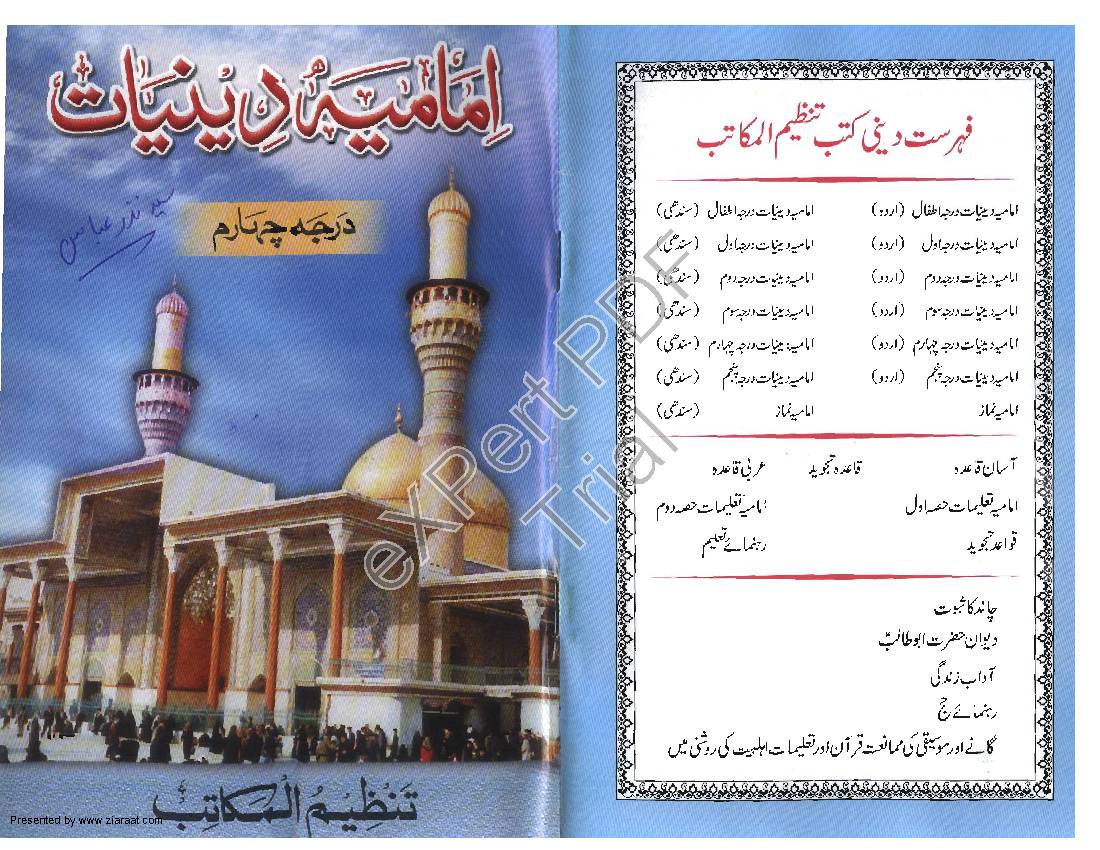 امامیہ دینیات
درجہ چہارم
سید نذر عباس
تنظیم المکاتب
Presented by www.ziaraat.com
فہرست دینی کتب تنظیم المکاتب
امامیہ دینیات درجہ اطفال (اردو) امامیہ دینیات درجہ اطفال (سندھی)
امامیہ دینیات درجہ اول (اردو) امامیہ دینیات درجہ اول (سندھی)
امامیہ دینیات درجہ دوم (اردو) امامیہ دینیات درجہ دوم (سندھی)
امامیہ دینیات درجہ سوم (اردو) امامیہ دینیات درجہ سوم (سندھی)
امامیہ دینیات درجہ چہارم (اردو) امامیہ دینیات درجہ چہارم (سندھی)
امامیہ دینیات درجہ پنجم (اردو) امامیہ دینیات درجہ پنجم (سندھی)
امامیہ نماز امامیہ نماز (سندھی)
آسان قاعدہ قاعدہ تجوید عربی قاعدہ
امامیہ تعلیمات حصہ اول امامیہ تعلیمات حصہ دوم
قواعد تجوید رہنمائے تعلیم
چاند کا ثبوت
دیوان حضرت ابو طالبؑ
آداب زندگی
رہنمائے حج
گانے اور موسیقی کی ممانعت قرآن اور تعلیمات اہلبیت کی روشنی میں
eXPert PDF
Trial